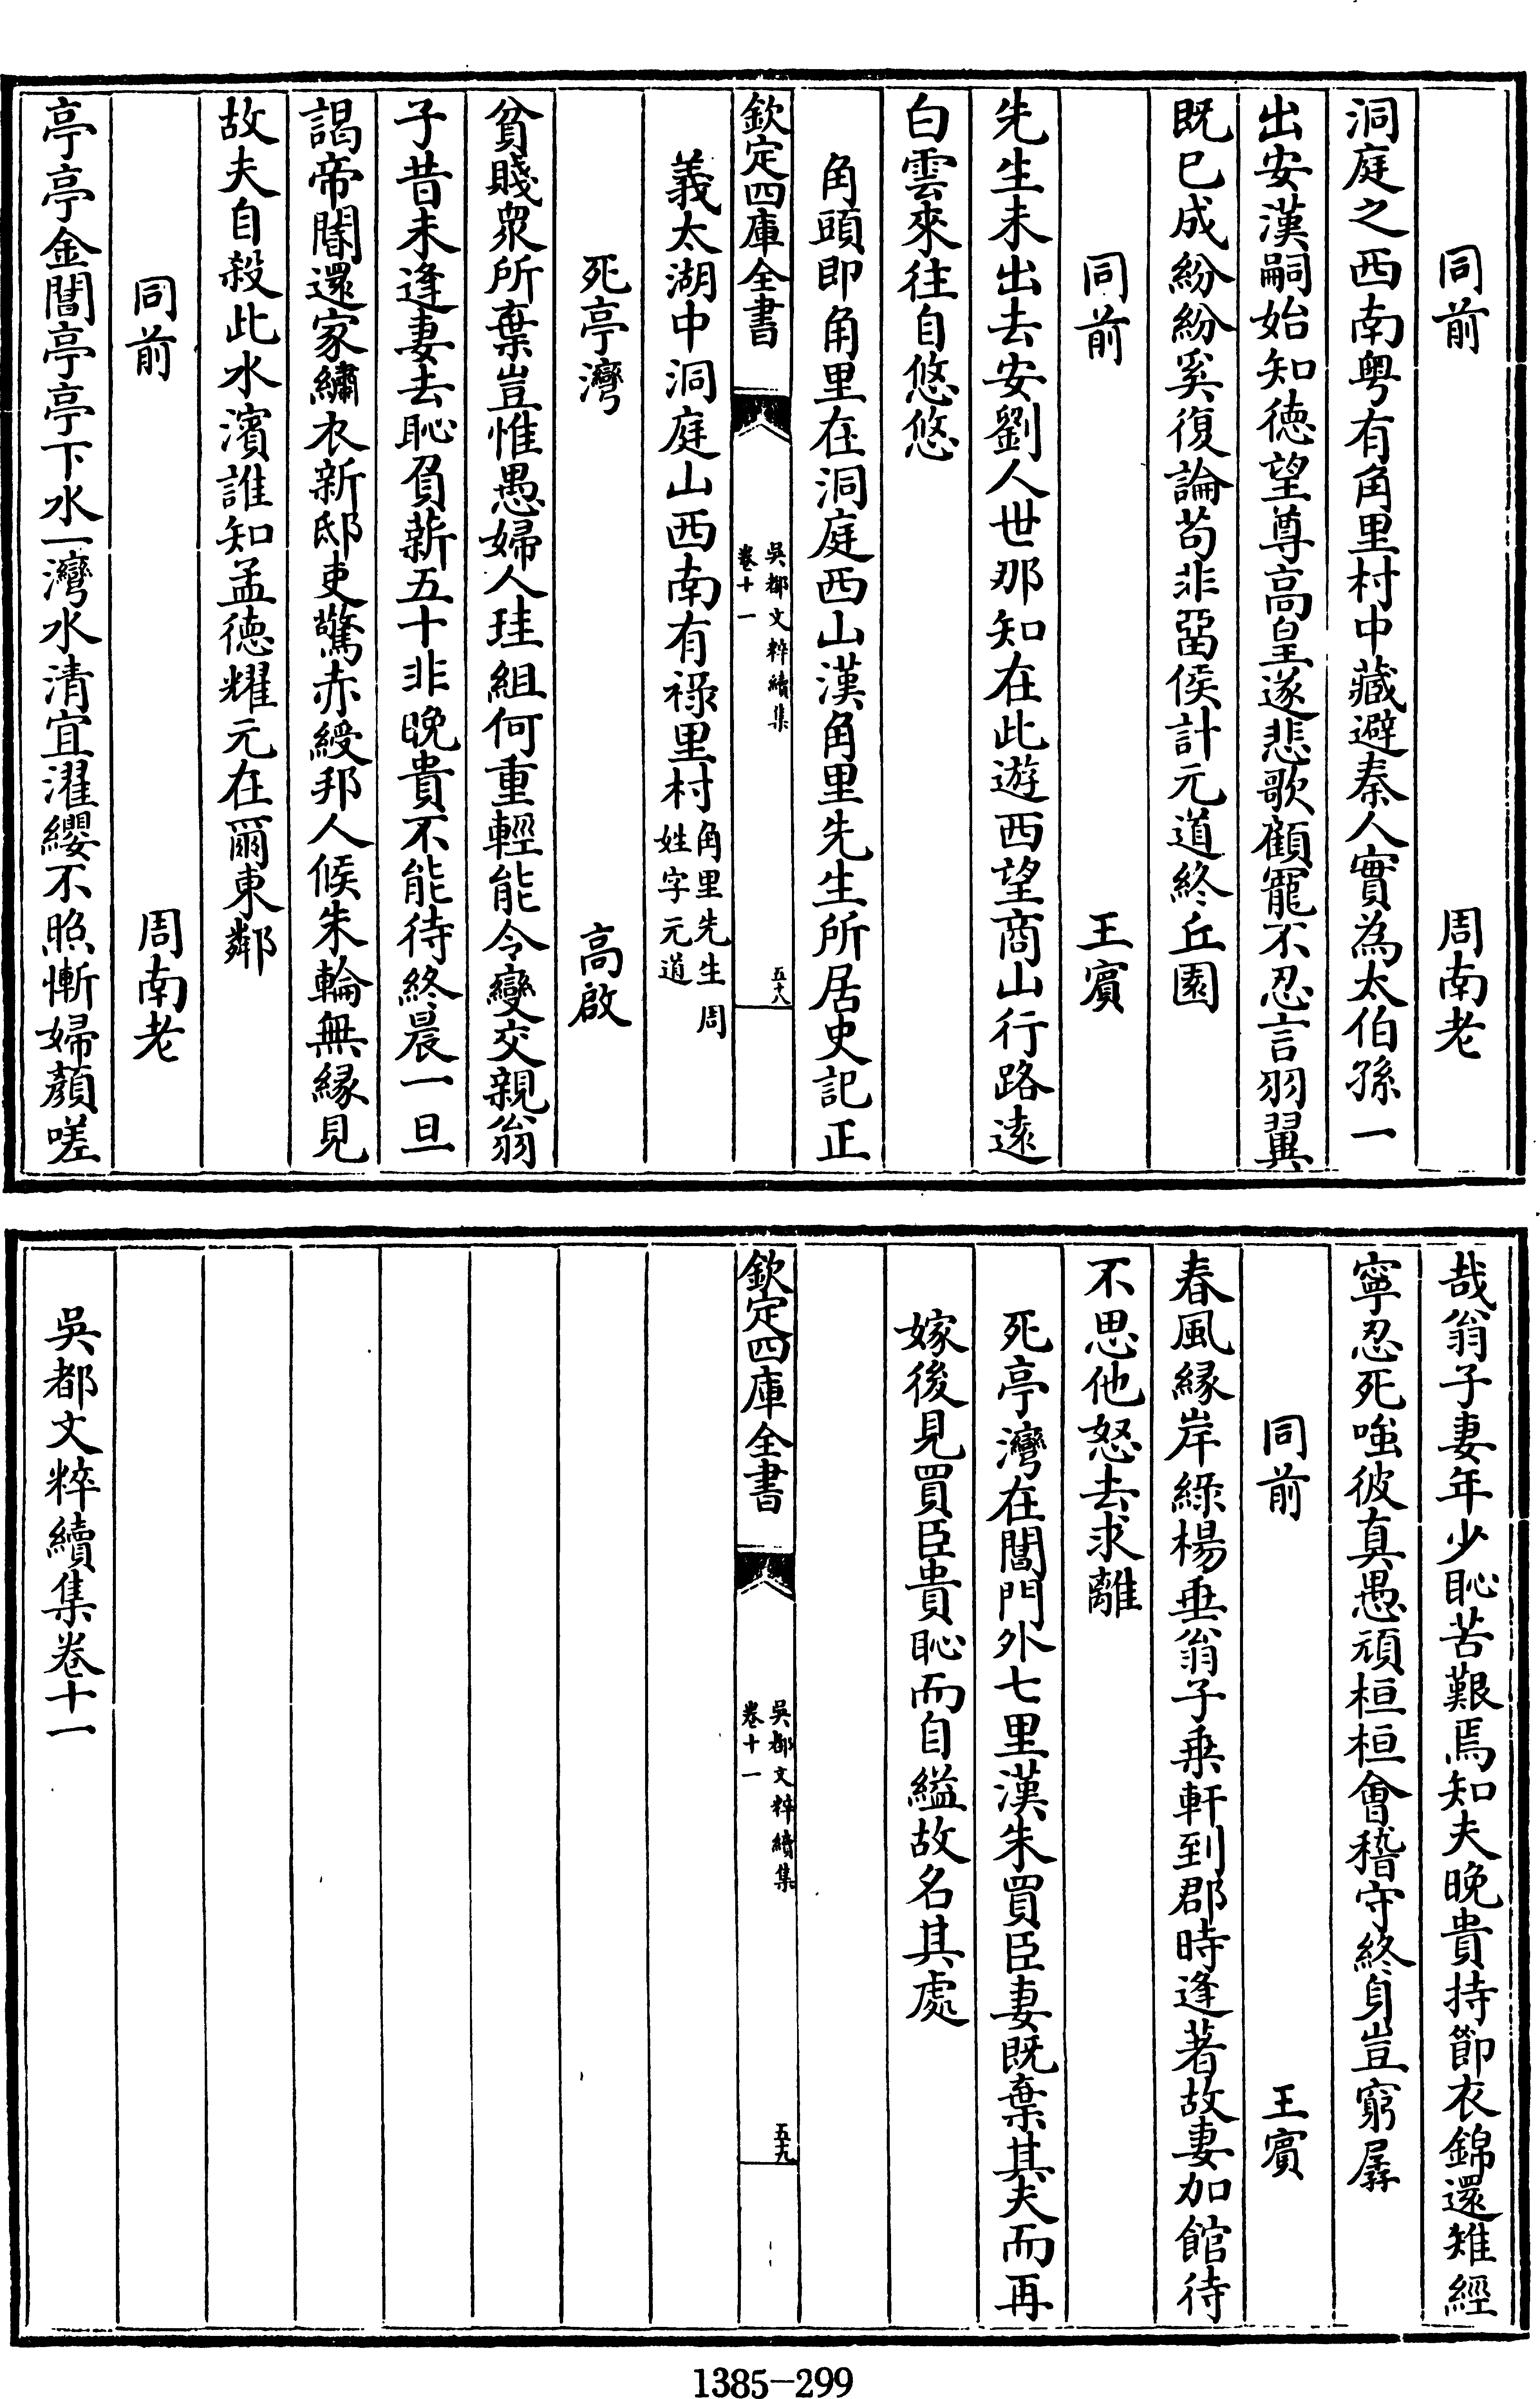 同前　周南老
洞庭之西南粤有角里村中藏避秦人實為太伯孫一
出安漢嗣始知徳望尊高皇遂悲歌顧寵不忍言羽翼
既已成紛紛奚復論苟非留侯計元道終丘園
同前　王賓
先生未出去安劉人世那知在此遊西望商山行路逺
白雲來往自悠悠
角頭即角里在洞庭西山漢角里先生所居史記正
欽定四庫全書
吳都文粹續集
卷十一
五十八
義太湖中洞庭山西南有祿里村角里先生周
姓字元道
死亭灣　高啟
貧賤衆所棄豈惟愚婦人珪組何重輕能令變交親翁
子昔未逢妻去恥負薪五十非晚貴不能待終晨一旦
謁帝閽還家繡衣新邸吏驚赤綬邦人候朱輪無緣見
故夫自殺此水濱誰知孟徳耀元在爾東鄰
同前　周南老
亭亭金閶亭亭下水一灣水清宜濯纓不照慚婦顏嗟
哉翁子妻年少恥苦艱焉知夫晚貴持節衣錦還雉經
寧忍死嗤彼真愚頑桓桓會稽守終身豈窮孱
同前　王賓
春風緣岸綠楊垂翁子乗軒到郡時逢著故妻加館待
不思他怒去求離
死亭灣在閶門外七里漢朱買臣妻既棄其夫而再
嫁後見買臣貴恥而自縊故名其處
欽定四庫全書
吳都文粹續集
卷十一
五十九
吳都文粹續集卷十一
1385-299